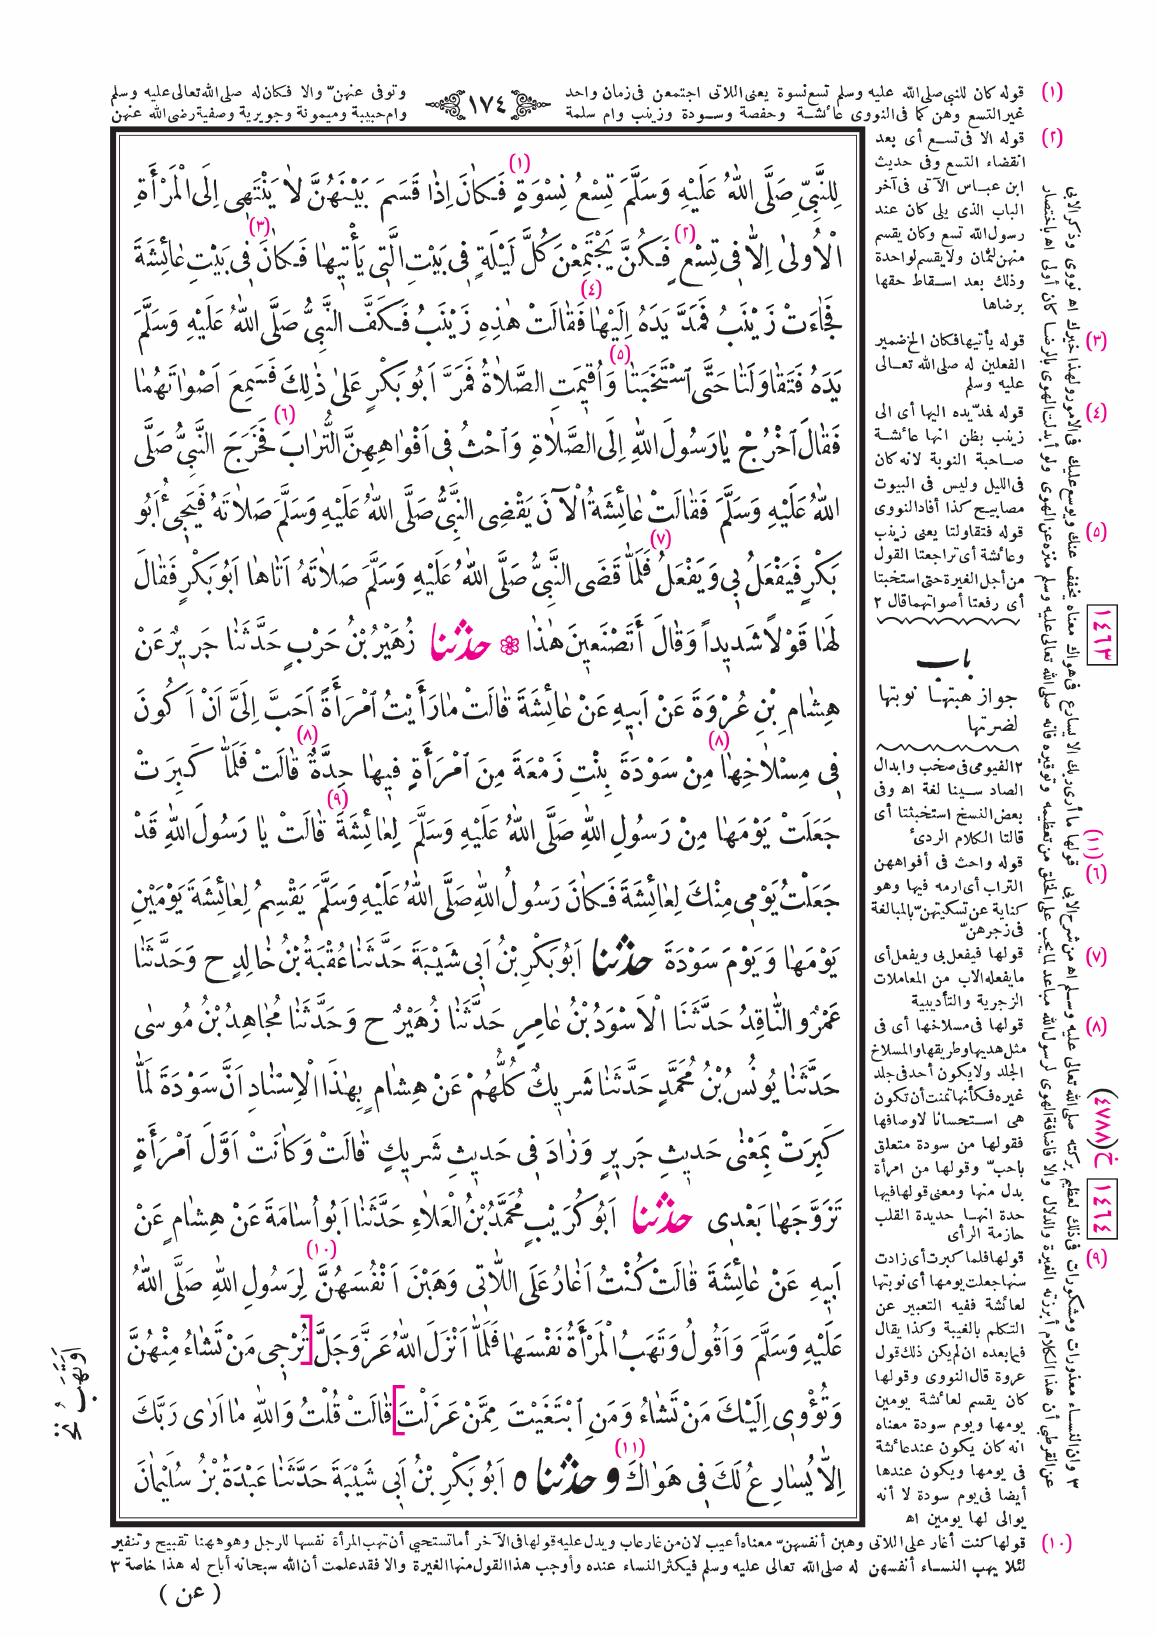 (١) قوله كان للنبي صلى الله عليه وسلم تسع نسوة يعنى اللاتى اجتمعن فى زمان واحد
غير التسع وهن كما فى النووى عائشة وحفصة وسودة وزينب وام سلمة
١٧٤
وتوفى عنهنّ والا فكان له صلى الله تعالى عليه وسلم
وام حبيبة وميمونة وجويرية وصفية رضى الله عنهن
لِلنَّبِىِّ صَلَّى اللهُ عَلَيْهِ وَسَلَّمَ تِسْعُ نِسْوَةٍ (١) فَكَانَ اِذَا قَسَمَ بَيْنَهُنَّ لَا يَنْتَهِى اِلَى الْمَرْأَةِ
الْاُولىٰ اِلاَّ فِى تِسْعٍ (٢) فَكُنَّ يَجْتَمِعْنَ كُلَّ لَيْلَةٍ فِى بَيْتِ الَّتِى يَأْتِيهَا (٣) فَكَانَ فِى بَيْتِ عَائِشَةَ
فَجَاءَتْ زَيْنَبُ فَمَدَّ يَدَهُ اِلَيْهَا (٤) فَقَالَتْ هٰذِهِ زَيْنَبُ فَكَفَّ النَّبِىُّ صَلَّى اللهُ عَلَيْهِ وَسَلَّمَ
يَدَهُ فَتَقَاوَلَتَا حَتَّى ٱسْتَخَبَتَا (٥) وَاُقِيمَتِ الصَّلَاةُ فَمَرَّ اَبُو بَكْرٍ عَلىٰ ذٰلِكَ فَسَمِعَ اَصْوَاتَهُمَا
فَقَالَ ٱخْرُجْ يَا رَسُولَ اللهِ اِلَى الصَّلَاةِ وَٱحْثُ فِى اَفْوَاهِهِنَّ التُّرَابَ (٦) فَخَرَجَ النَّبِىُّ صَلَّى
اللهُ عَلَيْهِ وَسَلَّمَ فَقَالَتْ عَائِشَةُ الْآنَ يَقْضِى النَّبِىُّ صَلَّى اللهُ عَلَيْهِ وَسَلَّمَ صَلَاتَهُ فَيَجِىءُ اَبُو
بَكْرٍ فَيَفْعَلُ بِى وَيَفْعَلُ (٧) فَلَمَّا قَضَى النَّبِىُّ صَلَّى اللهُ عَلَيْهِ وَسَلَّمَ صَلَاتَهُ اَتَاهَا اَبُو بَكْرٍ فَقَالَ
لَهَا قَوْلاً شَدِيداً وَقَالَ أَتَصْنَعِينَ هٰذَا ❀ حدثنا زُهَيْرُ بْنُ حَرْبٍ حَدَّثَنَا جَرِيرٌ عَنْ
هِشَامِ بْنِ عُرْوَةَ عَنْ اَبِيهِ عَنْ عَائِشَةَ قَالَتْ مَا رَأَيْتُ ٱمْرَأَةً اَحَبَّ اِلَىَّ اَنْ اَكُونَ
فِى مِسْلَاخِهَا (٨) مِنْ سَوْدَةَ بِنْتِ زَمْعَةَ مِنَ ٱمْرَأَةٍ فِيهَا حِدَّةٌ (٨) قَالَتْ فَلَمَّا كَبِرَتْ
جَعَلَتْ يَوْمَهَا مِنْ رَسُولِ اللهِ صَلَّى اللهُ عَلَيْهِ وَسَلَّمَ لِعَائِشَةَ (٩) قَالَتْ يَا رَسُولَ اللهِ قَدْ
جَعَلْتُ يَوْمِى مِنْكَ لِعَائِشَةَ فَكَانَ رَسُولُ اللهِ صَلَّى اللهُ عَلَيْهِ وَسَلَّمَ يَقْسِمُ لِعَائِشَةَ يَوْمَيْنِ
يَوْمَهَا وَيَوْمَ سَوْدَةَ حدثنا اَبُو بَكْرِ بْنُ اَبِى شَيْبَةَ حَدَّثَنَا عُقْبَةُ بْنُ خَالِدٍ ح وَحَدَّثَنَا
عَمْرٌو النَّاقِدُ حَدَّثَنَا الْاَسْوَدُ بْنُ عَامِرٍ حَدَّثَنَا زُهَيْرٌ ح وَحَدَّثَنَا مُجَاهِدُ بْنُ مُوسَى
حَدَّثَنَا يُونُسُ بْنُ مُحَمَّدٍ حَدَّثَنَا شَرِيكٌ كُلُّهُمْ عَنْ هِشَامٍ بِهٰذَا الْاِسْنَادِ اَنَّ سَوْدَةَ لَمَّا
كَبِرَتْ بِمَعْنىٰ حَدِيثِ جَرِيرٍ وَزَادَ فِى حَدِيثِ شَرِيكٍ قَالَتْ وَكَانَتْ اَوَّلَ ٱمْرَأَةٍ
تَزَوَّجَهَا بَعْدِى حدثنا اَبُو كُرَيْبٍ مُحَمَّدُ بْنُ الْعَلَاءِ حَدَّثَنَا اَبُو اُسَامَةَ عَنْ هِشَامٍ عَنْ
اَبِيهِ عَنْ عَائِشَةَ قَالَتْ كُنْتُ اَغَارُ عَلَى اللَّاتِى وَهَبْنَ اَنْفُسَهُنَّ (١٠) لِرَسُولِ اللهِ صَلَّى اللهُ
عَلَيْهِ وَسَلَّمَ وَاَقُولُ وَتَهَبُ الْمَرْأَةُ نَفْسَهَا فَلَمَّا اَنْزَلَ اللهُ عَزَّ وَجَلَّ [تُرْجِى مَنْ تَشَاءُ مِنْهُنَّ
وَتُؤْوِى اِلَيْكَ مَنْ تَشَاءُ وَمَنِ ٱبْتَغَيْتَ مِمَّنْ عَزَلْتَ] قَالَتْ قُلْتُ وَاللهِ مَا اَرَى رَبَّكَ
اِلاَّ يُسَارِعُ لَكَ فِى هَوَاكَ (١١) و حدثناه اَبُو بَكْرِ بْنُ اَبِى شَيْبَةَ حَدَّثَنَا عَبْدَةُ بْنُ سُلَيْمَانَ
اَوَتَهَبُ نخ
(٢) قوله الا فى تسع أى بعد
انقضاء التسع وفى حديث
ابن عباس الآتى فى آخر
الباب الذى يلى كان عند
رسول الله تسع وكان يقسم
منهن لثمان ولا يقسم لواحدة
وذلك بعد اسقاط حقها
برضاها
(٣) قوله يأتيها فكان الخ ضمير
الفعلين له صلى الله تعالى
عليه وسلم
(٤) قوله فمدّ يده اليها أى الى
زينب يظن انها عائشة
صاحبة النوبة لانه كان
فى الليل وليس فى البيوت
مصابيح كذا أفاد النووى
(٥) قوله فتقاولتا يعنى زينب
وعائشة أى تراجعتا القول
من أجل الغيرة حتى استخبتا
أى رفعتا أصواتهما قال ٢
باب
جواز هبتها نوبتها
لضرتها
٢ الفيومى فى صخب وابدال
الصاد سينا لغة اه وفى
بعض النسخ استخبثتا أى
قالتا الكلام الردىء
(٦) قوله واحث فى أفواههن
التراب أى ارمه فيها وهو
كناية عن تسكيتهنّ بالمبالغة
فى زجرهنّ
(٧) قولها فيفعل بى ويفعل أى
ما يفعله الاب من المعاملات
الزجرية والتأديبية
(٨) قولها فى مسلاخها أى فى
مثل هديها وطريقها والمسلاخ
الجلد ولا يكون أحد فى جلد
غيره فكأنها تمنت أن تكون
هى استحسانا لاوصافها
فقولها من سودة متعلق
باحبّ وقولها من امرأة
بدل منها ومعنى قولها فيها
حدة انها حديدة القلب
حازمة الرأى
(٩) قولها فلما كبرت أى زادت
سنها جعلت يومها أى نوبتها
لعائشة ففيه التعبير عن
التكلم بالغيبة وكذا يقال
فيما بعده ان لم يكن ذلك قول
عروة قال النووى وقولها
كان يقسم لعائشة يومين
يومها ويوم سودة معناه
انه كان يكون عند عائشة
فى يومها ويكون عندها
أيضا فى يوم سودة لا أنه
يوالى لها يومين اه
١٤٦٣
خ(٤٧٨٨) ١٤٦٤
٣ وان النساء معذورات ومشكورات فى ذلك لعظيم بركته صلى الله تعالى عليه وسلم اه من شرح الابى (١١) قولها ما أرى ربك الا يسارع فى هواك معناه يخفف عنك ويوسع عليك فى الامور ولهذا خيرك اه نووى وذكر الابى
عن القرطبى أن هذا الكلام أبرزته الغيرة والدلال والا فاضافة الهوى لرسول الله مباعد لما يجب على الخلق من تعظيمه وتوقيره فانه صلى الله تعالى عليه وسلم منزه عن الهوى ولو أبدلت الهوى بالرضا كان أولى اه باختصار
(١٠) قولها كنت أغار على اللاتى وهبن أنفسهنّ معناه أعيب لان من غار عاب ويدل عليه قولها فى الآخر أما تستحيى أن تهب المرأة نفسها للرجل وهو ههنا تقبيح وتنفير
لئلا يهب النساء أنفسهن له صلى الله تعالى عليه وسلم فيكثر النساء عنده وأوجب هذا القول منها الغيرة والا فقد علمت أن الله سبحانه أباح له هذا خاصة ٣
( عن )